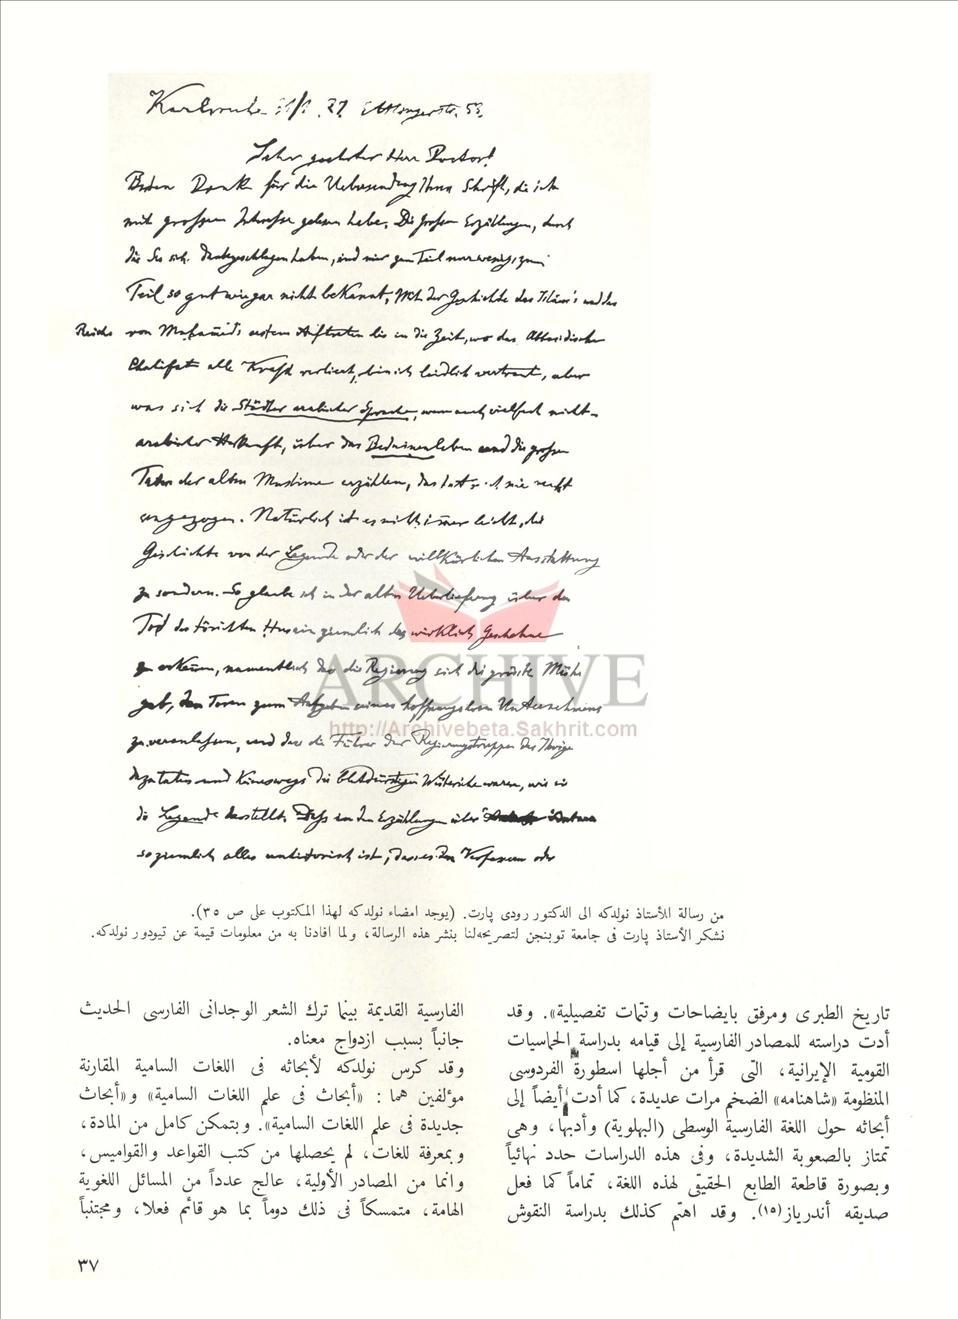 Karlsruhe 27. Ettlingerstr. 53.
Sehr geehrter Herr Doctor!
Besten Dank für die Uebersendung Ihrer Schrift, die ich
mit grossem Interesse gelesen habe. Die grossen Erzählungen, durch
die Sie sich durchgeschlagen haben, sind mir zum Teil nur wenig, zum
Teil so gut wie gar nicht bekannt. Mit der Geschichte des Islām's und des
Reichs von Muhammed's erstem Auftreten bis in die Zeit, wo das Abbasidische
Chalifat alle Kraft verliert, bin ich leidlich vertraut, aber
was sich die Städter arabischer Sprache, wenn auch vielfach nicht-
arabischer Herkunft, über das Beduinenleben und die grossen
Taten der alten Muslime erzählen, das hat mich nie recht
angezogen. Natürlich ist es nicht immer leicht, die
Geschichte von der Legende oder der willkürlichen Ausstattung
zu sondern. So glaube ich in der alten Ueberlieferung über den
Tod des törichten Husein ziemlich das wirklich Geschehene
zu erkennen, namentlich dass die Regierung sich die grösste Mühe
gab, den Toren zum Aufgeben seines hoffnungslosen Unternehmens
zu veranlassen, und dass die Führer der Regierungstruppen das Ihrige
dazu taten und keineswegs die blutdürstigen Wüteriche waren, wie sie
die Legende darstellt. Dass in den Erzählungen über Antara
so ziemlich alles unhistorisch ist, dass es den Verfassern oder
ARCHIVE
http://Archivebeta.Sakhrit.com
من رسالة للأستاذ نولدكه الى الدكتور رودى پارت. (يوجد امضاء نولدكه لهذا المكتوب على ص ٣٥).
نشكر الأستاذ پارت فى جامعة توبنجن لتصريحه لنا بنشر هذه الرسالة، ولما افادنا به من معلومات قيمة عن تيودور نولدكه.
تاريخ الطبرى ومرفق بايضاحات وتتمات تفصيلية». وقد
أدت دراسته للمصادر الفارسية إلى قيامه بدراسة الحماسيات
القومية الإيرانية، التى قرأ من أجلها اسطورة الفردوسى
المنظومة «شاهنامه» الضخم مرات عديدة، كما أدت أيضاً إلى
أبحاثه حول اللغة الفارسية الوسطى (البهلوية) وأدبها، وهى
تمتاز بالصعوبة الشديدة، وفى هذه الدراسات حدد نهائياً
وبصورة قاطعة الطابع الحقيقى لهذه اللغة، تماماً كما فعل
صديقه أندرياز(١٥). وقد اهتم كذلك بدراسة النقوش
الفارسية القديمة بينما ترك الشعر الوجدانى الفارسى الحديث
جانباً بسبب ازدواج معناه.
وقد كرس نولدكه لأبحاثه فى اللغات السامية المقارنة
مؤلفين هما : «أبحاث فى علم اللغات السامية» و«أبحاث
جديدة فى علم اللغات السامية». وبتمكن كامل من المادة،
وبمعرفة للغات، لم يحصلها من كتب القواعد والقواميس،
وانما من المصادر الأولية، عالج عدداً من المسائل اللغوية
الهامة، متمسكاً فى ذلك دوماً بما هو قائم فعلا، ومجتنباً
٣٧